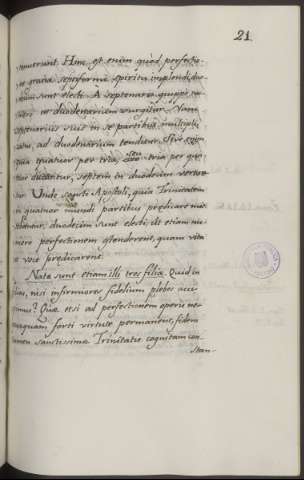 21
venerunt. Hinc est enim quòd perfectio-
ne gratia septiformi spiritu implendi, duo-
decim sunt electi. A septenario quippe nu-
mero in duodenarium surgitur. Nam
septenarius suis in se partibus multipli-
catus, ad duodenarium tenditur. Sive enim
quatuor per tria, seu tria per qua-
tuor ducantur, septem in duodecim vertun-
tur. Unde sancti Apostoli, quia Trinitatem
in quatuor mundi partibus prædicare mit-
tebantur, duodecim sunt electi, ut etiam nu-
mero perfectionem ostenderent, quam vita
et voce prædicarent.
Natæ sunt etiam illi tres filiæ. Quid in
filias, nisi infirmiores fidelium plebes acci-
pimus? Quæ etsi ad perfectionem operis ne-
quaquam forti virtute permanent, fidem
tamen sanctissimæ Trinitatis cognitam con-
stan-